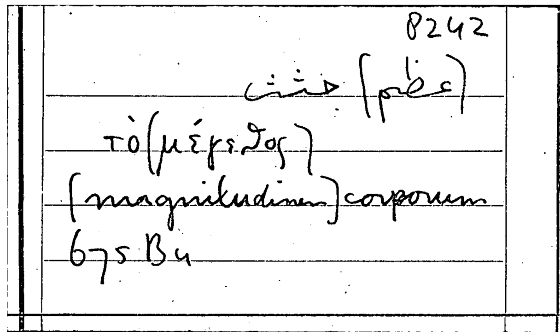 8242
(عظم) جثث
τὸ (μέγεθος)
[magnitudinem] corporum
675 B4